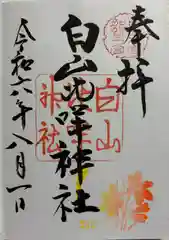 奉拝
白山比咩神社
令和六年八月一日
白山
神社